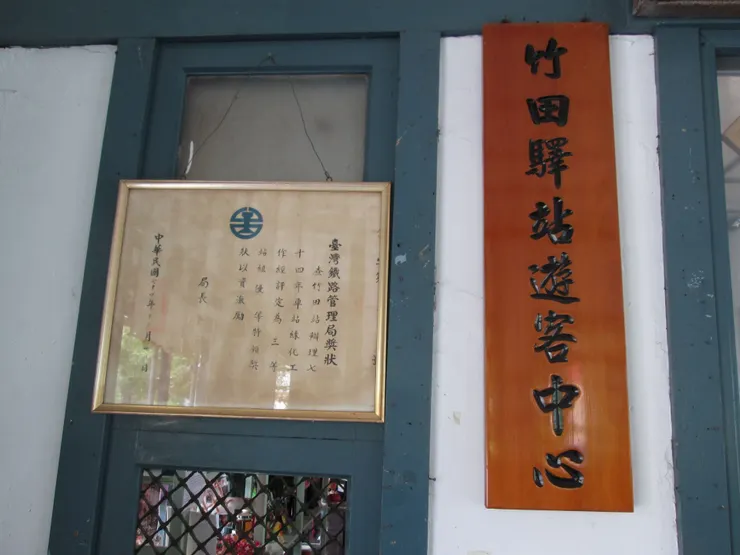 竹田驛站遊客中心
臺灣鐵路管理局獎狀
查竹田站辦理七
十四年車站綠化工
作經評定為三等
站組 等特頒獎
狀以資激勵
局長
中華民國 年 月 日